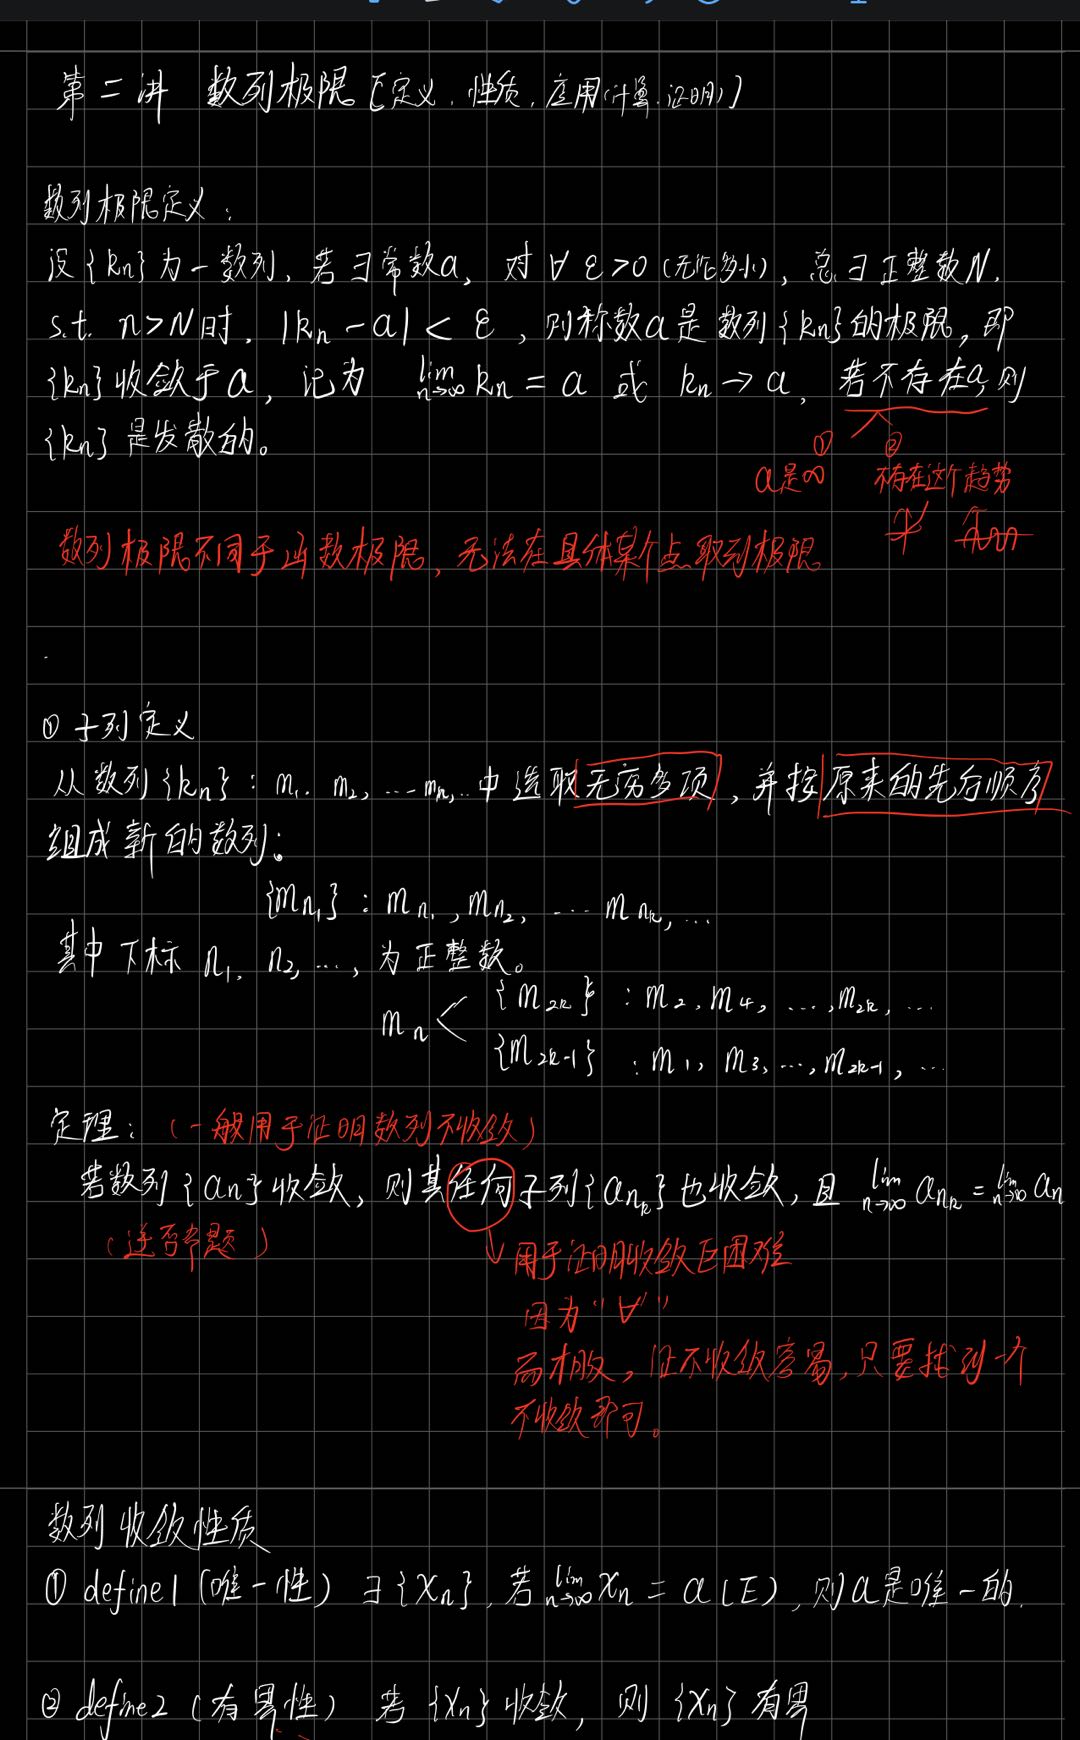 第二讲 数列极限 [定义. 性质. 应用(计算. 证明)]
数列极限定义：
设{kn}为一数列, 若∃常数a, 对∀ε>0(无论多小), 总∃正整数N.
s.t. n>N时, |kn-a|<ε, 则称数a是数列{kn}的极限, 即
{kn}收敛于a, 记为 lim n→∞ kn = a 或 kn→a, 若不存在a, 则
{kn}是发散的。
① ②
a是∞ 不存在这个趋势
数列极限不同于函数极限, 无法在具体某个点取到极限
① 子列定义
从数列{kn}: m1. m2, ... mn,... 中选取无穷多项, 并按原来的先后顺序
组成新的数列:
{mn1}: mn1, mn2, ... mnk, ...
其中下标 n1, n2, ..., 为正整数。
{m2k}: m2, m4, ..., m2k, ...
mn <
{m2k-1}: m1, m3, ..., m2k-1, ...
定理: (一般用于证明数列不收敛)
若数列{an}收敛, 则其任何子列{ank}也收敛, 且 lim n→∞ ank = lim n→∞ an
(逆否命题)
用于证明收敛巨困难
因为"∀"
而相反, 证不收敛容易, 只要找到一个
不收敛即可。
数列收敛性质
① define1 (唯一性) ∃{xn}, 若 lim n→∞ xn = a(E), 则a是唯一的.
② define2 (有界性) 若{xn}收敛, 则{xn}有界